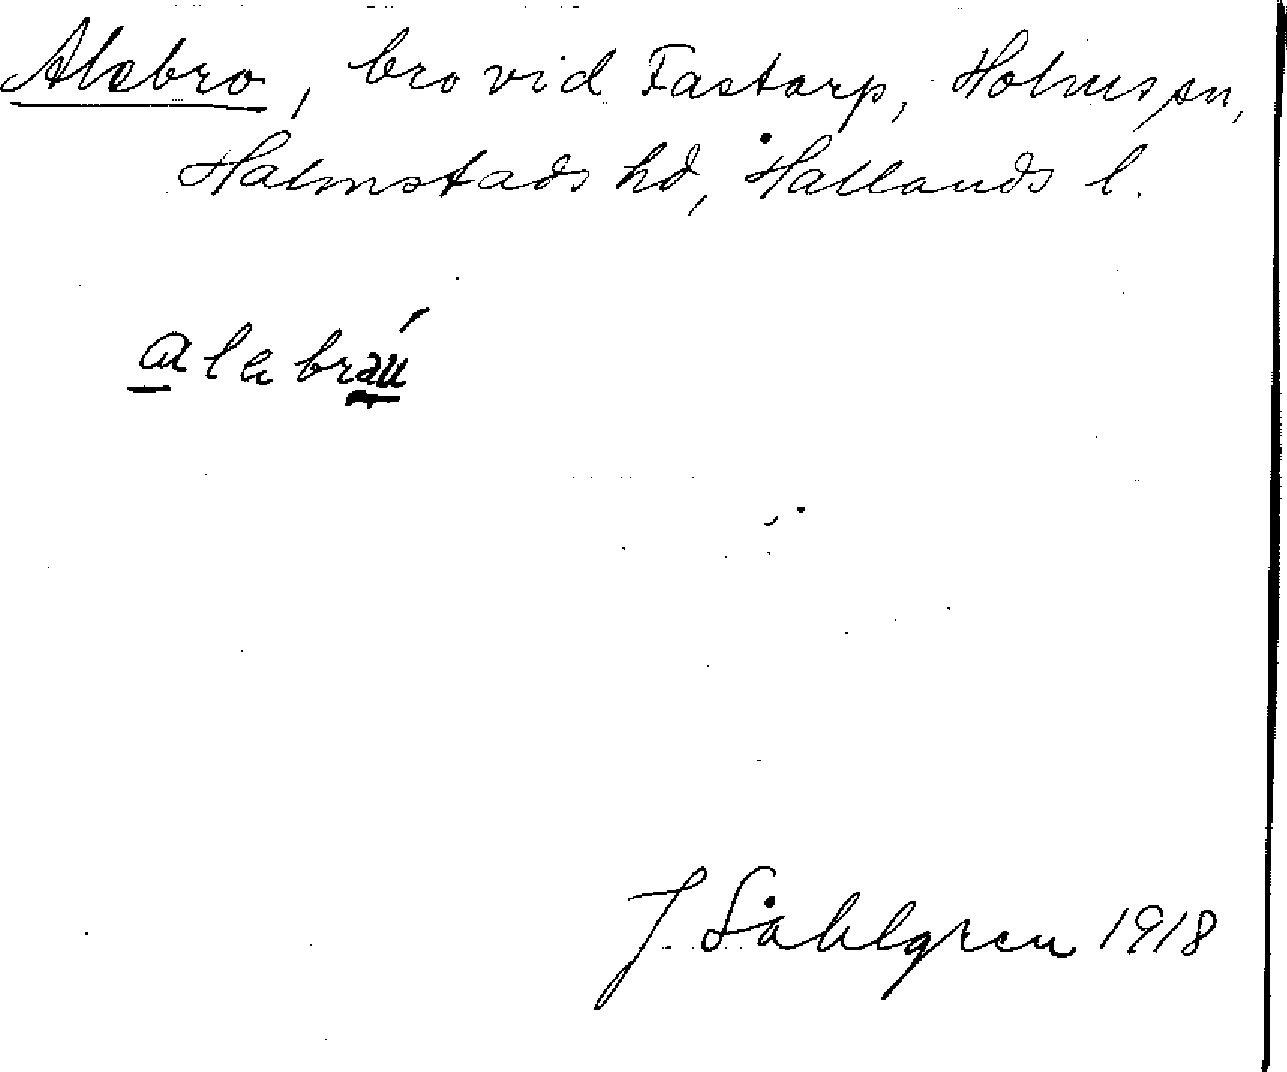 Alebro, bro vid Fastarp, Holms sn,
Halmstads hd, Hallands l.
alebráu
J Sahlgren 1918